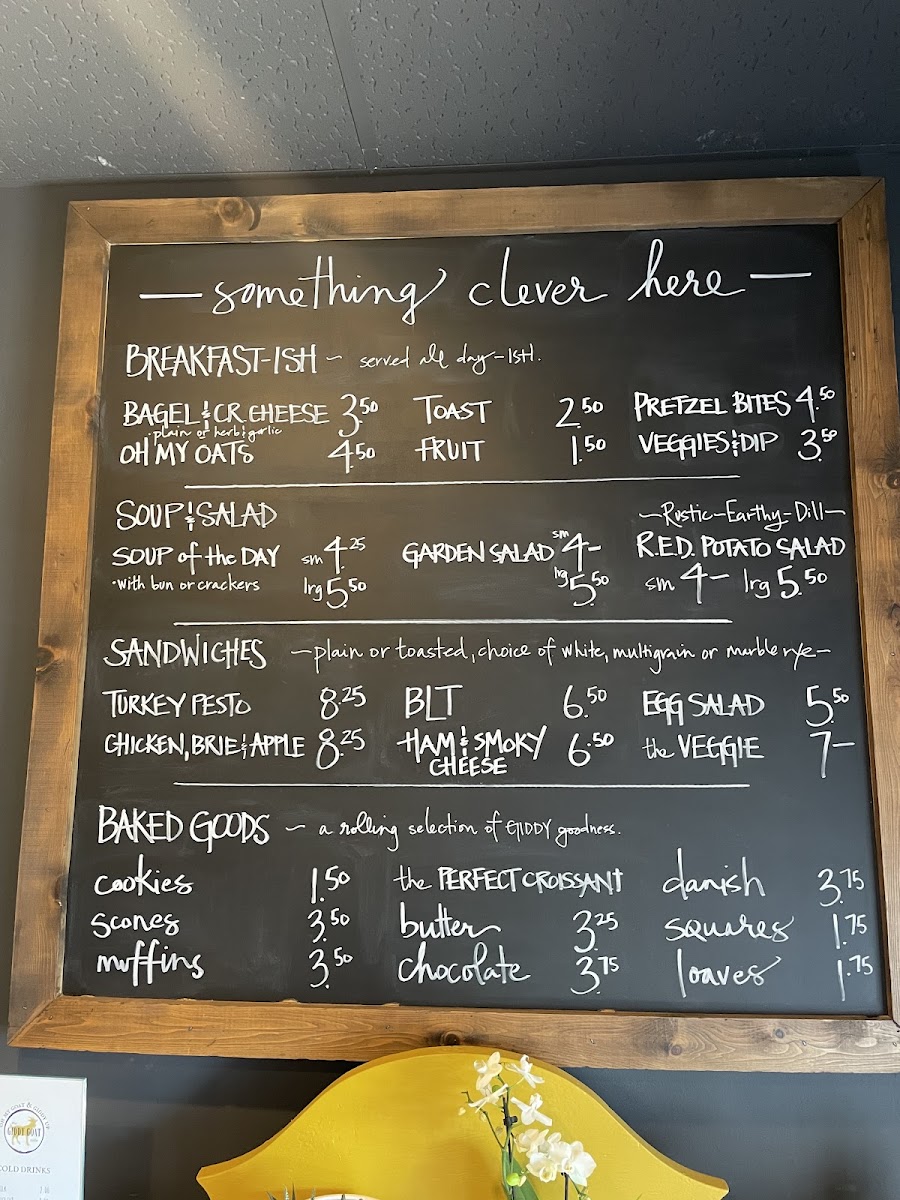 — something clever here —
BREAKFAST-ISH ~ served all day-ISH.
BAGEL & CR. CHEESE 3.50 TOAST 2.50 PRETZEL BITES 4.50
plain or herb & garlic
OH MY OATS 4.50 FRUIT 1.50 VEGGIES & DIP 3.50
SOUP & SALAD ~Rustic-Earthy-Dill~
SOUP of the DAY sm 4.25 GARDEN SALAD sm 4- R.E.D. POTATO SALAD
·with bun or crackers lrg 5.50 lrg 5.50 sm 4- lrg 5.50
SANDWICHES ~plain or toasted, choice of white, multigrain or marble rye~
TURKEY PESTO 8.25 BLT 6.50 EGG SALAD 5.50
CHICKEN, BRIE & APPLE 8.25 HAM & SMOKY 6.50 the VEGGIE 7-
CHEESE
BAKED GOODS ~ a rolling selection of GIDDY goodness.
cookies 1.50 the PERFECT CROISSANT danish 3.75
scones 3.50 butter 3.25 squares 1.75
muffins 3.50 chocolate 3.75 loaves 1.75
GIDDY GOAT
COLD DRINKS